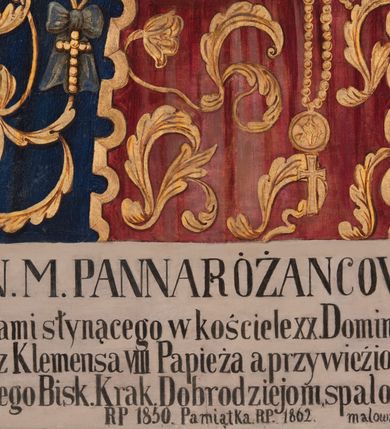 N. M. PANNA RÓŻANCOW
ami słynącego w kościele xx. Domin
z Klemensa VIII Papieża a przywieźio
ego Bisk. Krak. Dobrodziejom, spalo
RP 1850. Pamiątka. RP. 1862. malow